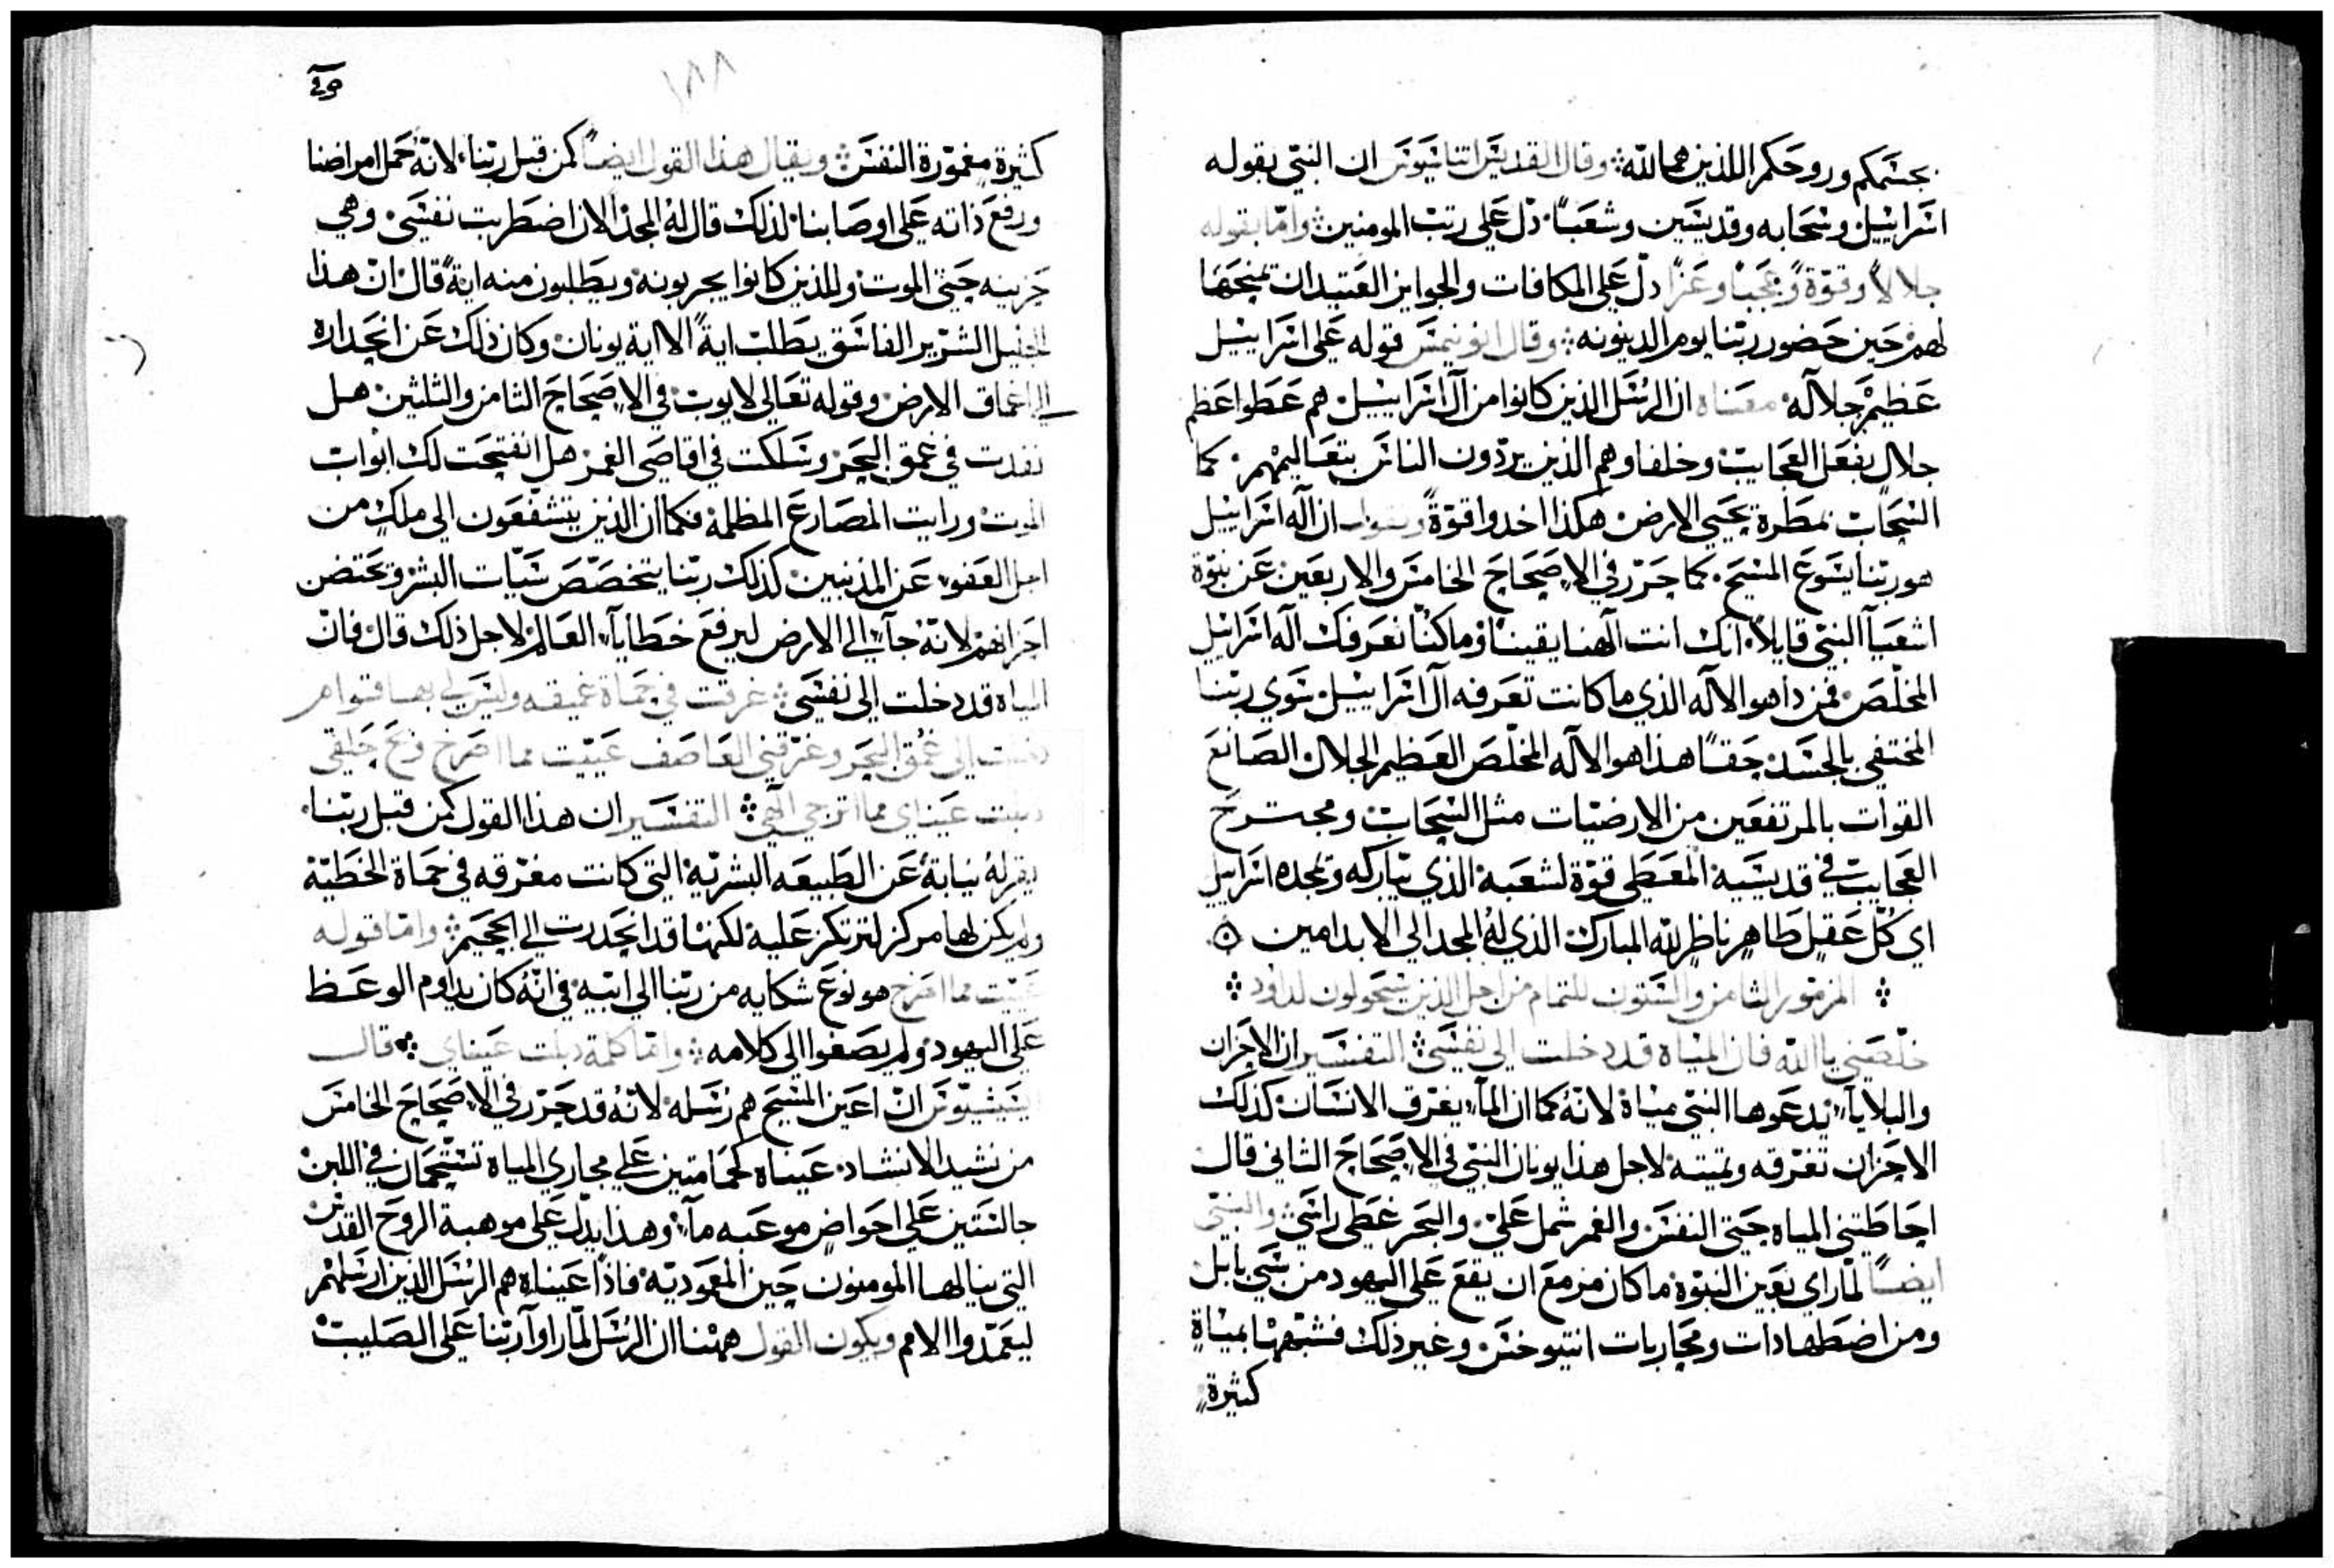 بجسَمكم وروحكم اللذين هما لله؛ وقال القديسَ اتناسَيوسَ ان النبي بقوله
اسَراييل وسَحابه وقديسَين وشعباً دل علي رتب المومنين؛ وامّا بقوله
جلالاً وقوّة وعجباً وعزاً دل علي المكافات والجوايز العتيدان تمنحها
لهم حين حضور ربنا يوم الدينونه؛ وقال انونيمسَ قوله علي اسَراييل
عظيم جلاله معناه ان الرسَل الذين كانوا من آل اسَراييل هم عَطوا عظم
جلال بفعل العجايب وخلفاوهم الذين يردّون الناسَ بتعاليمهم. كما
السَحاب بمطره يحيي الارض هكذا اخدوا قوّةً ويقول ان اله اسَراييل
هو ربنا يسَوع المسَيح. كما حرّر في الاصحاح الخامسَ والاربعين عن نبوّة
اشعيآ النبي قايلاً انك انت الهنا يقيناً وما كنّا نعرفك اله اسَراييل
المخلّص فمن ذا هو الاله الذي ما كانت تعرفه آل اسَراييل سَوي ربنا
المختفي بالجسَد حقاً هذا هو الاله المخلّص العظيم الجلال الصانع
القوات بالمرتفعين من الارضيّات مثل السَحاب ومجترح
العجايب في قديسَيه المعطي قوّة لشعبه الذي تباركه وتمجده اسَراييل
اي كلّ عقل طاهر ناظر لله المبارك الذي له المجد الي الابد امين
؛ المزمور الثامن والسَتون للتمام من اجل الذين سَيحولون لداود ؛
خلّصني يا الله فان المياه قد دخلت الي نفسَي؛ التفسَير ان الاحزان
والبلايآ يدعوها النبي مياه لانه كما ان المآ يغرق الانسَان كذلك
الاحزان تغرقه وتميته لاجل هذا يونان النبي في الاصحاح الثاني قال
احاطتني المياه حتي النفسَ والغمر شمل علي والبحر غطي راسَي؛ والنبي
ايضاً لمّا راي بعين النبوّة ما كان مزمع ان يقع علي اليهود من سَبي بابل
ومن اضطهادات ومحاربات انتيوخسَ وغير ذلك فشبّهها بمياه
كثيرة
١٨٨
كثيرة مغموّرة النفسَ؛ ويقال هذا القول ايضاً كمن قبل ربنا لانه حمل امراضنا
ورفع ذاته علي اوصابنا لذلك قال له المجد الان اضطربت نفسَي وهي
حزينه حتي الموت وللذين كانوا يجربونه ويطلبون منه ايةً قال ان هذا
الجيل الشرّير الفاسَق يطلب ايةً الا اية يونان وكان ذلك عن انحداره
الي اعماق الارض وقوله تعالي لايوب في الاصحاح الثامن والثلثين هل
نفدت في عمق البحر وسَلكت في اقاصي الغمر هل انفتحت لك ابواب
الموت ورايت المصارع المظلمة فكما ان الذين يتشفّعون الي ملك من
اجل العفو عن المذنبين كذلك ربنا يتخصّص سَيّات البشر ويحتضن
احزانهم لانه جآ الي الارض ليرفع خطايآ العالم لاجل ذلك قال فانّ
المياه قد دخلت الي نفسَي؛ غرقت في حماة عميقه وليسَ لي بها قوام
دخلت الي عمق البحر وغرّقني العاصف عييت مما اصرخ وبح حلقي
دبلت عيناي مما اترجي الهي؛ التفسَير ان هذا القول كمن قبل ربنا
يقوله نيابةً عن الطبيعه البشريّه التي كانت مغرّقه في حماة الخطيّة
ولم يكن لها مركز لترتكز عليه لكنها قد انحدرت الي الجحيم؛ وامّا قوله
عييت مما اصرخ هو نوع شكايه من ربنا الي ابيه في انه كان يداوم الوعظ
علي اليهود ولم يصغوا الي كلامه؛ وامّا كلمة دبلت عيناي؛ قال
انّ اعين المسَيح هم رسَله لانه قد حرّر في الاصحاح الخامسَ
من نشيد الانشاد عيناه كحمامتين علي مجاري المياه تسَتحمان في اللبن
جالسَتين علي احواض موعبه مآ وهذا يدلّ علي موهبة الروح القدسَ
التي ينالها المومنون حين المعموديّه فاذاً عيناه هم الرسَل الذين ارسَلهم
ليعمّدوا الامم ويكون القول ههنا ان الرسَل لمّا راوآ ربنا علي الصليب